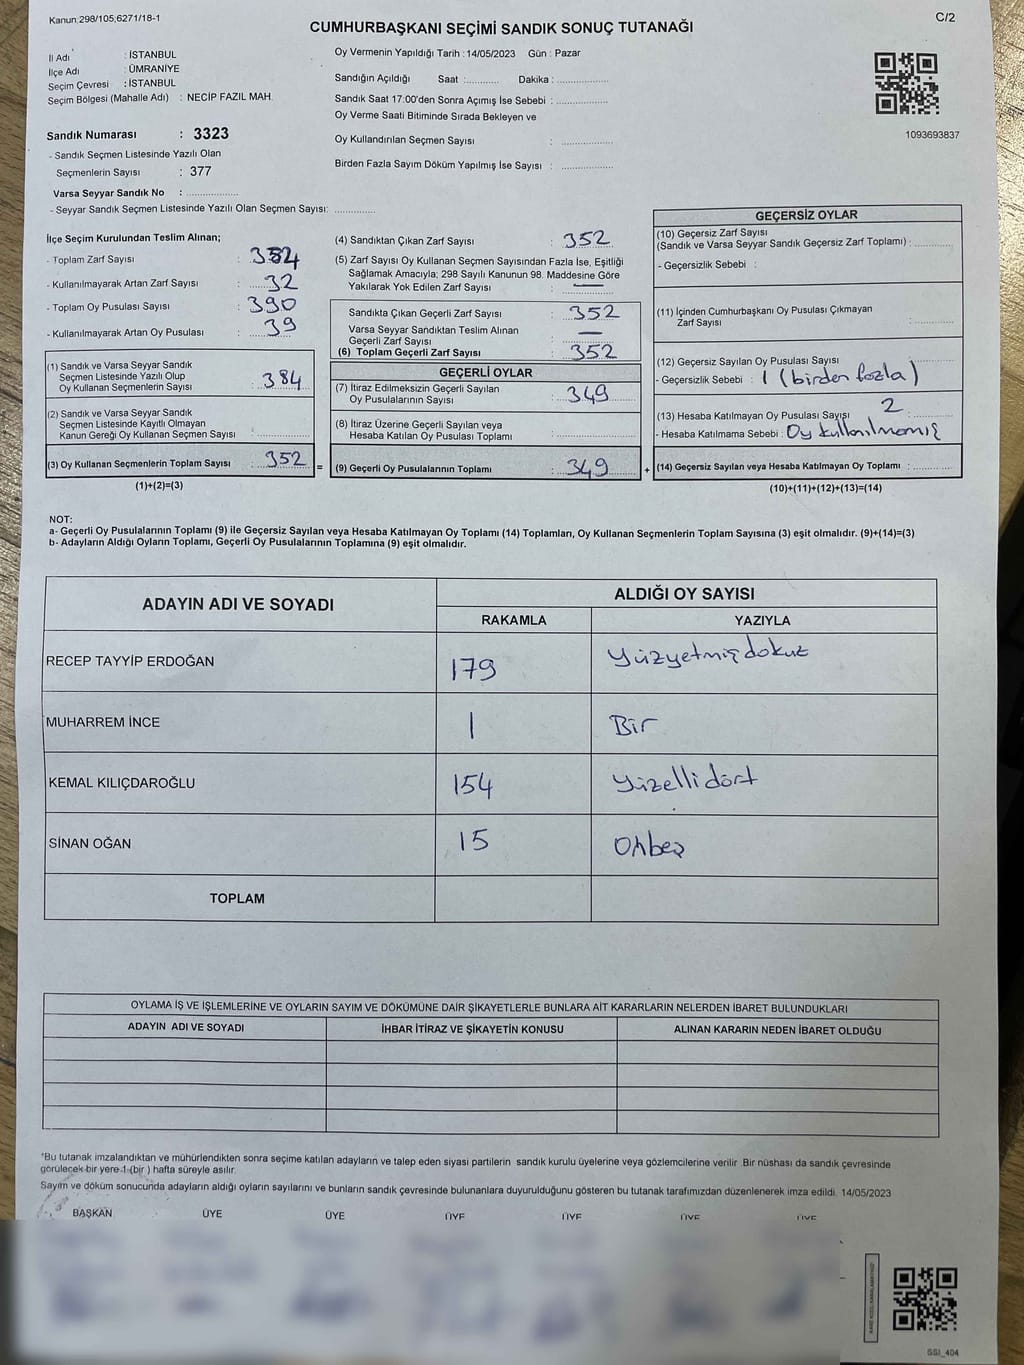 Kanun:298/105;6271/18-1
C/2
CUMHURBAŞKANI SEÇİMİ SANDIK SONUÇ TUTANAĞI
İl Adı : İSTANBUL
İlçe Adı : ÜMRANİYE
Seçim Çevresi : İSTANBUL
Seçim Bölgesi (Mahalle Adı) : NECİP FAZIL MAH.
Sandık Numarası : 3323
- Sandık Seçmen Listesinde Yazılı Olan
Seçmenlerin Sayısı : 377
Varsa Seyyar Sandık No : ..................
- Seyyar Sandık Seçmen Listesinde Yazılı Olan Seçmen Sayısı: ..............
Oy Vermenin Yapıldığı Tarih : 14/05/2023 Gün : Pazar
Sandığın Açıldığı Saat :........... Dakika : ..................
Sandık Saat 17:00'den Sonra Açımış İse Sebebi : ..................
Oy Verme Saati Bitiminde Sırada Bekleyen ve
Oy Kullandırılan Seçmen Sayısı : ..................
Birden Fazla Sayım Döküm Yapılmış İse Sayısı : ..................
1093693837
İlçe Seçim Kurulundan Teslim Alınan;
- Toplam Zarf Sayısı : 384
- Kullanılmayarak Artan Zarf Sayısı : 32
- Toplam Oy Pusulası Sayısı : 390
- Kullanılmayarak Artan Oy Pusulası : 39
(1) Sandık ve Varsa Seyyar Sandık
Seçmen Listesinde Yazılı Olup
Oy Kullanan Seçmenlerin Sayısı : 384
(2) Sandık ve Varsa Seyyar Sandık
Seçmen Listesinde Kayıtlı Olmayan
Kanun Gereği Oy Kullanan Seçmen Sayısı : ..............
(3) Oy Kullanan Seçmenlerin Toplam Sayısı : 352 =
(1)+(2)=(3)
(4) Sandıktan Çıkan Zarf Sayısı : 352
(5) Zarf Sayısı Oy Kullanan Seçmen Sayısından Fazla İse, Eşitliği
Sağlamak Amacıyla; 298 Sayılı Kanunun 98. Maddesine Göre
Yakılarak Yok Edilen Zarf Sayısı : —
Sandıkta Çıkan Geçerli Zarf Sayısı : 352
Varsa Seyyar Sandıktan Teslim Alınan
Geçerli Zarf Sayısı : —
(6) Toplam Geçerli Zarf Sayısı : 352
GEÇERLİ OYLAR
(7) İtiraz Edilmeksizin Geçerli Sayılan
Oy Pusulalarının Sayısı : 349
(8) İtiraz Üzerine Geçerli Sayılan veya
Hesaba Katılan Oy Pusulası Toplamı : ..............
(9) Geçerli Oy Pusulalarının Toplamı : 349 +
GEÇERSİZ OYLAR
(10) Geçersiz Zarf Sayısı
(Sandık ve Varsa Seyyar Sandık Geçersiz Zarf Toplamı) : ............
- Geçersizlik Sebebi :
(11) İçinden Cumhurbaşkanı Oy Pusulası Çıkmayan
Zarf Sayısı : ............
(12) Geçersiz Sayılan Oy Pusulası Sayısı : ............
- Geçersizlik Sebebi : 1 (birden fazla)
(13) Hesaba Katılmayan Oy Pusulası Sayışı : 2
- Hesaba Katılmama Sebebi : Oy kullanılmamış
(14) Geçersiz Sayılan veya Hesaba Katılmayan Oy Toplamı : ............
(10)+(11)+(12)+(13)=(14)
NOT:
a- Geçerli Oy Pusulalarının Toplamı (9) ile Geçersiz Sayılan veya Hesaba Katılmayan Oy Toplamı (14) Toplamları, Oy Kullanan Seçmenlerin Toplam Sayısına (3) eşit olmalıdır. (9)+(14)=(3)
b- Adayların Aldığı Oyların Toplamı, Geçerli Oy Pusulalarının Toplamına (9) eşit olmalıdır.
ADAYIN ADI VE SOYADI
ALDIĞI OY SAYISI
RAKAMLA YAZIYLA
RECEP TAYYİP ERDOĞAN 179 Yüzyetmişdokuz
MUHARREM İNCE 1 Bir
KEMAL KILIÇDAROĞLU 154 Yüzellidört
SİNAN OĞAN 15 Onbeş
TOPLAM
OYLAMA İŞ VE İŞLEMLERİNE VE OYLARIN SAYIM VE DÖKÜMÜNE DAİR ŞİKAYETLERLE BUNLARA AİT KARARLARIN NELERDEN İBARET BULUNDUKLARI
ADAYIN ADI VE SOYADI İHBAR İTİRAZ VE ŞİKAYETİN KONUSU ALINAN KARARIN NEDEN İBARET OLDUĞU
*Bu tutanak imzalandıktan ve mühürlendikten sonra seçime katılan adayların ve talep eden siyasi partilerin sandık kurulu üyelerine veya gözlemcilerine verilir. Bir nüshası da sandık çevresinde
görülecek bir yere 1 (bir ) hafta süreyle asılır.
Sayım ve döküm sonucunda adayların aldığı oyların sayılarını ve bunların sandık çevresinde bulunanlara duyurulduğunu gösteren bu tutanak tarafımızdan düzenlenerek imza edildi. 14/05/2023
BAŞKAN ÜYE ÜYE ÜYE ÜYE ÜYE ÜYE
SSI_404